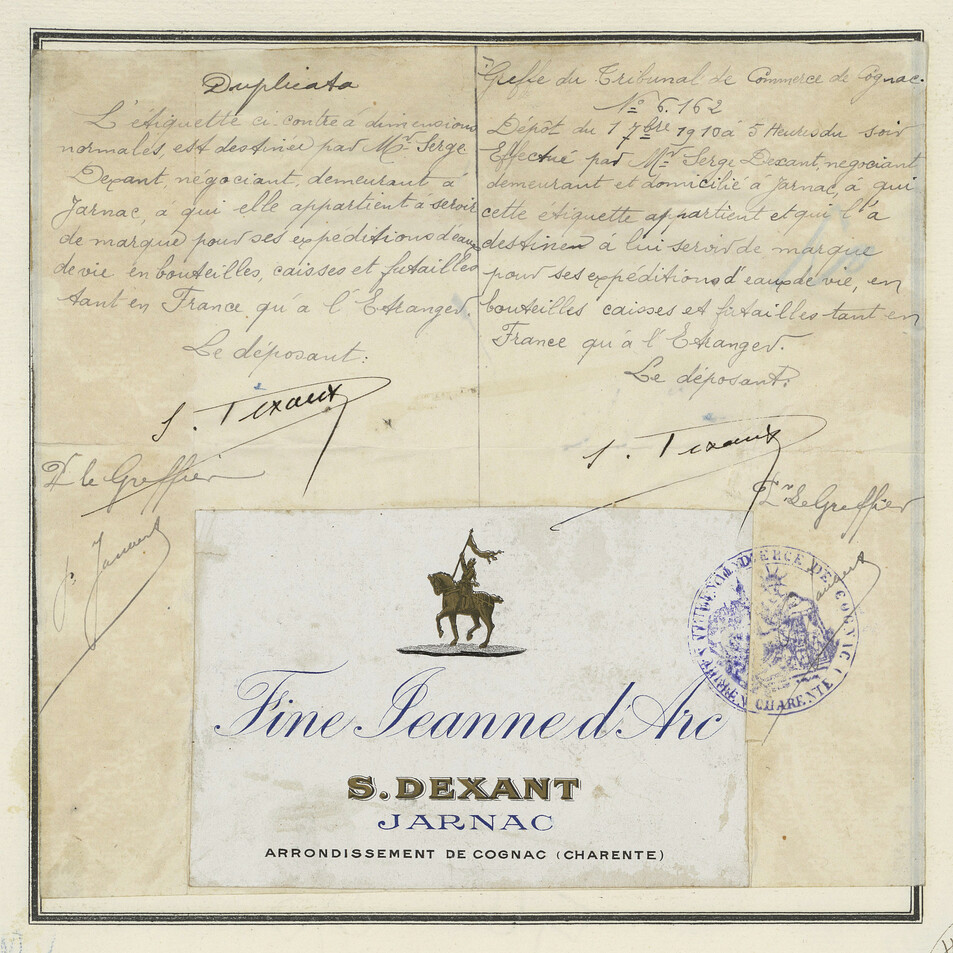 Duplicata
L'étiquette ci-contre à dimensions
normales, est destinée par Mr Serge
Dexant, négociant, demeurant à
Jarnac, à qui elle appartient a servir
de marque pour ses expéditions d'eaux
de vie en bouteilles, caisses et futailles
tant en France qu'à l'Etranger.
Le déposant:
S. Dexant
Pr le Greffier
Greffe du Tribunal de Commerce de Cognac.
No 6.162
Dépôt du 1 7bre 1910 à 5 Heures du soir
Effectué par Mr Serge Dexant, négociant
demeurant et domicilié à Jarnac, à qui
cette étiquette appartient et qui l'a
destinée à lui servir de marque
pour ses expéditions d'eaux de vie, en
bouteilles caisses et futailles tant en
France qu'à l'Etranger.
Le déposant:
S. Dexant
Pr Le Greffier
COMMERCE DE COGNAC
CHARENTE
Fine Jeanne d'Arc
S. DEXANT
JARNAC
ARRONDISSEMENT DE COGNAC (CHARENTE)